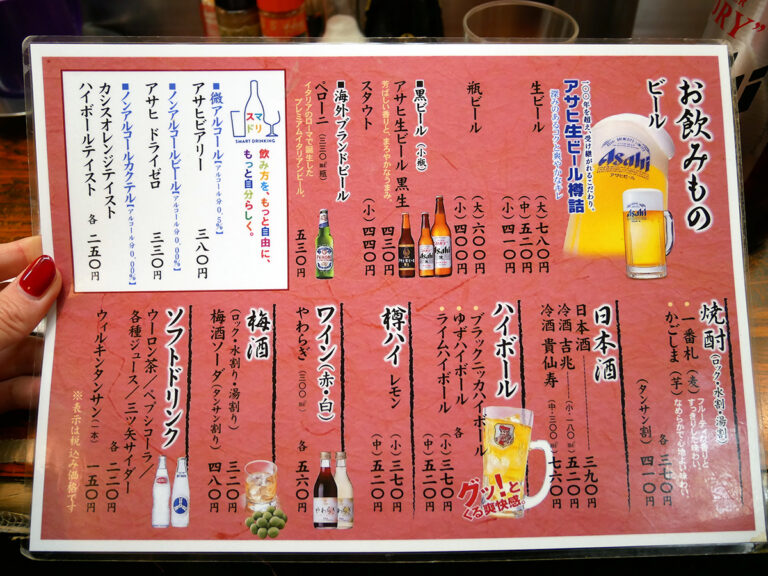 お飲みもの
ビール
一〇〇年を超え、受け継がれるこだわり。
アサヒ生ビール樽詰
深みのあるコクと爽やかなキレ
生ビール
(大)七八〇円
(中)五二〇円
(小)四一〇円
瓶ビール
(大)六〇〇円
(小)四四〇円
■黒ビール(小瓶)
アサヒ生ビール 黒生
四三〇円
芳ばしい香りと、まろやかなうまみ。
スタウト
(小)四四〇円
■海外ブランドビール
ペローニ(三三〇㎖瓶)
五三〇円
イタリアのローマで誕生した
プレミアムイタリアンビール。
スマドリ
SMART DRINKING
飲み方を、もっと自由に、
もっと自分らしく。
■微アルコール【アルコール分0.5%】
アサヒビアリー
三八〇円
■ノンアルコールビール【アルコール分0.00%】
アサヒ ドライゼロ
三三〇円
■ノンアルコールカクテル【アルコール分0.00%】
カシスオレンジテイスト
ハイボールテイスト
各 二五〇円
焼酎(ロック・水割・湯割)
一番札(麦)
フルーティな香りと
すっきりした味わい。
かごしま(芋)
なめらかで心地よい味わい。
各 三七〇円
(タンサン割)四一〇円
日本酒
日本酒 三九〇円
冷酒 吉兆(小・一八〇㎖)五二〇円
冷酒 貴仙寿(中・三〇〇㎖)七六〇円
ハイボール
ブラックニッカハイボール
ゆずハイボール
ライムハイボール
各
(小)三七〇円
(中)五二〇円
グッ!と
くる爽快感。
樽ハイ
レモン
(小)三七〇円
(中)五二〇円
ワイン(赤・白)
やわらぎ(三〇〇㎖)
各 五六〇円
梅酒
(ロック・水割り・湯割り)
三二〇円
梅酒ソーダ(タンサン割り)
四八〇円
ソフトドリンク
ウーロン茶/ペプシコーラ/
各種ジュース/三ツ矢サイダー
各 二二〇円
ウィルキンタンサン(一本)
一五〇円
※表示は税込み価格です
Asahi
アサヒビール
Asahi
Asahi
やわらぎ